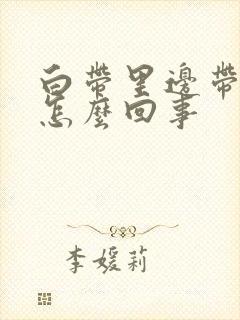 白帶里邊帶
怎麼回事
李媛莉